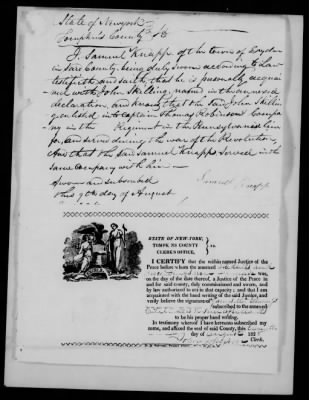 State of New york
Tompkins County ss
I, Samuel Knapp of the town of
in said County being duly sworn according to Law
testifieth and saith, that he is personally acquai
nted with John Skilling, named in the annexed
declaration, and knows that the said John Skillin
g enlisted in Captain Thomas Robinson Compa
ny in the Regiment in the Pennsylvania Line
for, and served during the war of the Revolution,
And that the said Samuel Knapp served in the
same Company with him
Sworn and subscribed
this 9th day of August
Samuel Knapp
STATE OF NEW-YORK,
TOMPKINS COUNTY
CLERKS OFFICE,
ss.
I CERTIFY that the within named Justice of the
Peace before whom the annexed
was,
on the day of the date thereof, a Justice of the Peace in
and for said county, duly commissioned and sworn, and
by law authorized to act in that capacity; and that I am
acquainted with the hand writing of the said Justice, and
verily believe the signature of
subscribed to the annexed
to be his proper hand writing.
In testimony whereof I have hereunto subscribed my
name, and affixed the seal of said County, this
day of August 182
Clerk.